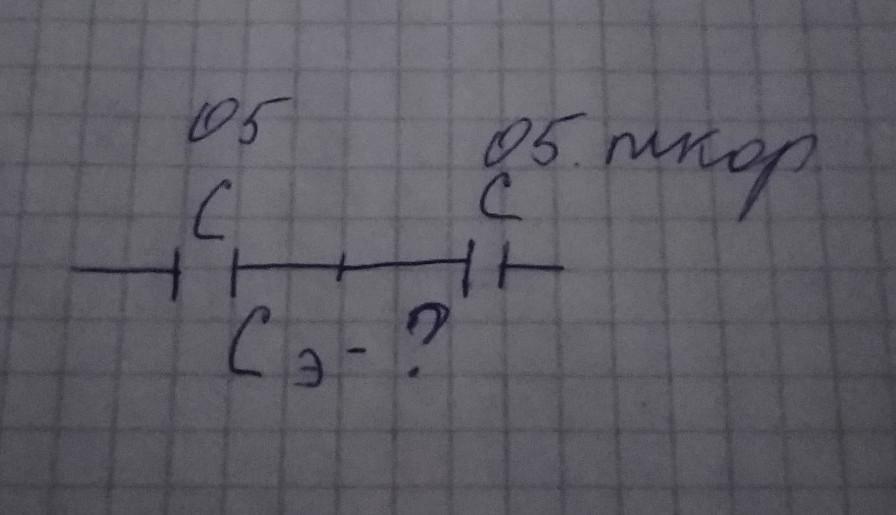 05
05. мкф
C
C
Cэ - ?